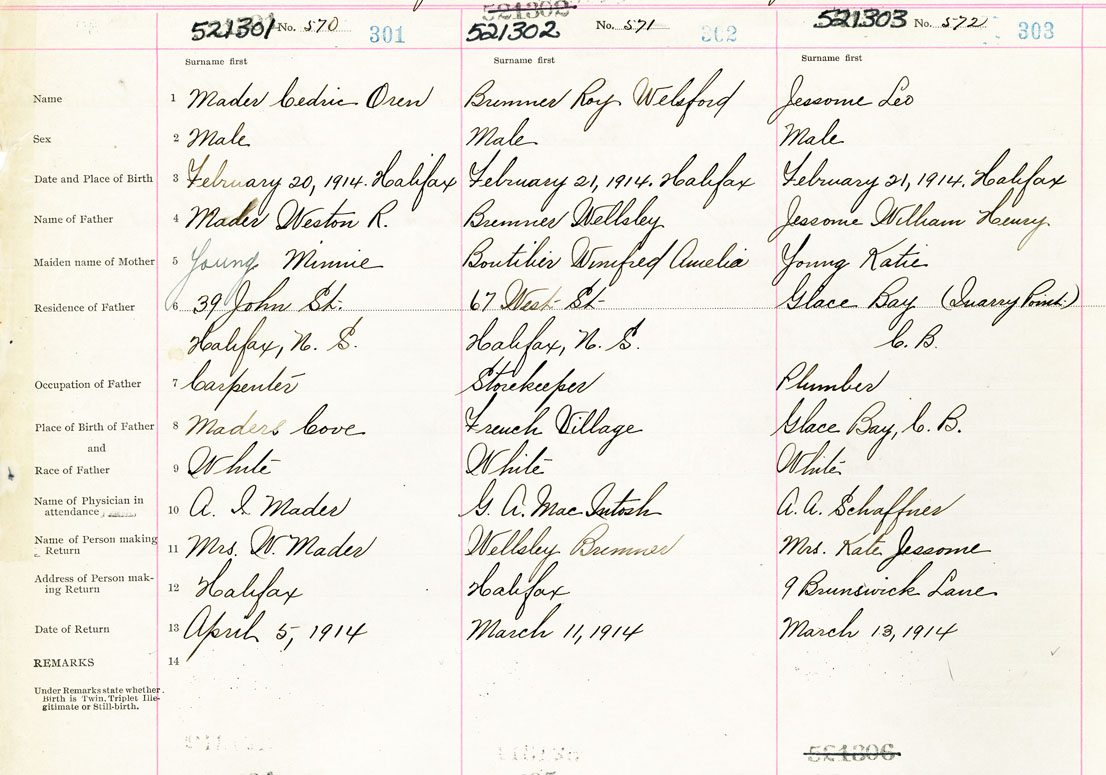 521302
521301 No. 570 301 521302 No. 571 302 521303 No. 572 303
Surname first Surname first Surname first
Name 1 Mader Cedric Oren Bremner Roy Welsford Jessome Leo
Sex 2 Male Male Male
Date and Place of Birth 3 February 20, 1914. Halifax February 21, 1914. Halifax February 21, 1914. Halifax
Name of Father 4 Mader Weston R. Bremner Wellsley Jessome William Henry
Maiden name of Mother 5 Young Minnie Boutilier Winifred Amelia Young Katie
Residence of Father 6 39 John St. 67 West St Glace Bay (Quarry Point)
Halifax, N. S. Halifax, N. S. C. B.
Occupation of Father 7 Carpenter Storekeeper Plumber
Place of Birth of Father 8 Maders Cove French Village Glace Bay, C. B.
and
Race of Father 9 White White White
Name of Physician in
attendance 10 A. I. Mader G. A. MacIntosh A. A. Schaffner
Name of Person making
Return 11 Mrs. W. Mader Wellsley Bremner Mrs. Kate Jessome
Address of Person mak-
ing Return 12 Halifax Halifax 9 Brunswick Lane
Date of Return 13 April 5, 1914 March 11, 1914 March 13, 1914
REMARKS 14
Under Remarks state whether
Birth is Twin, Triplet Ille-
gitimate or Still-birth.
521306